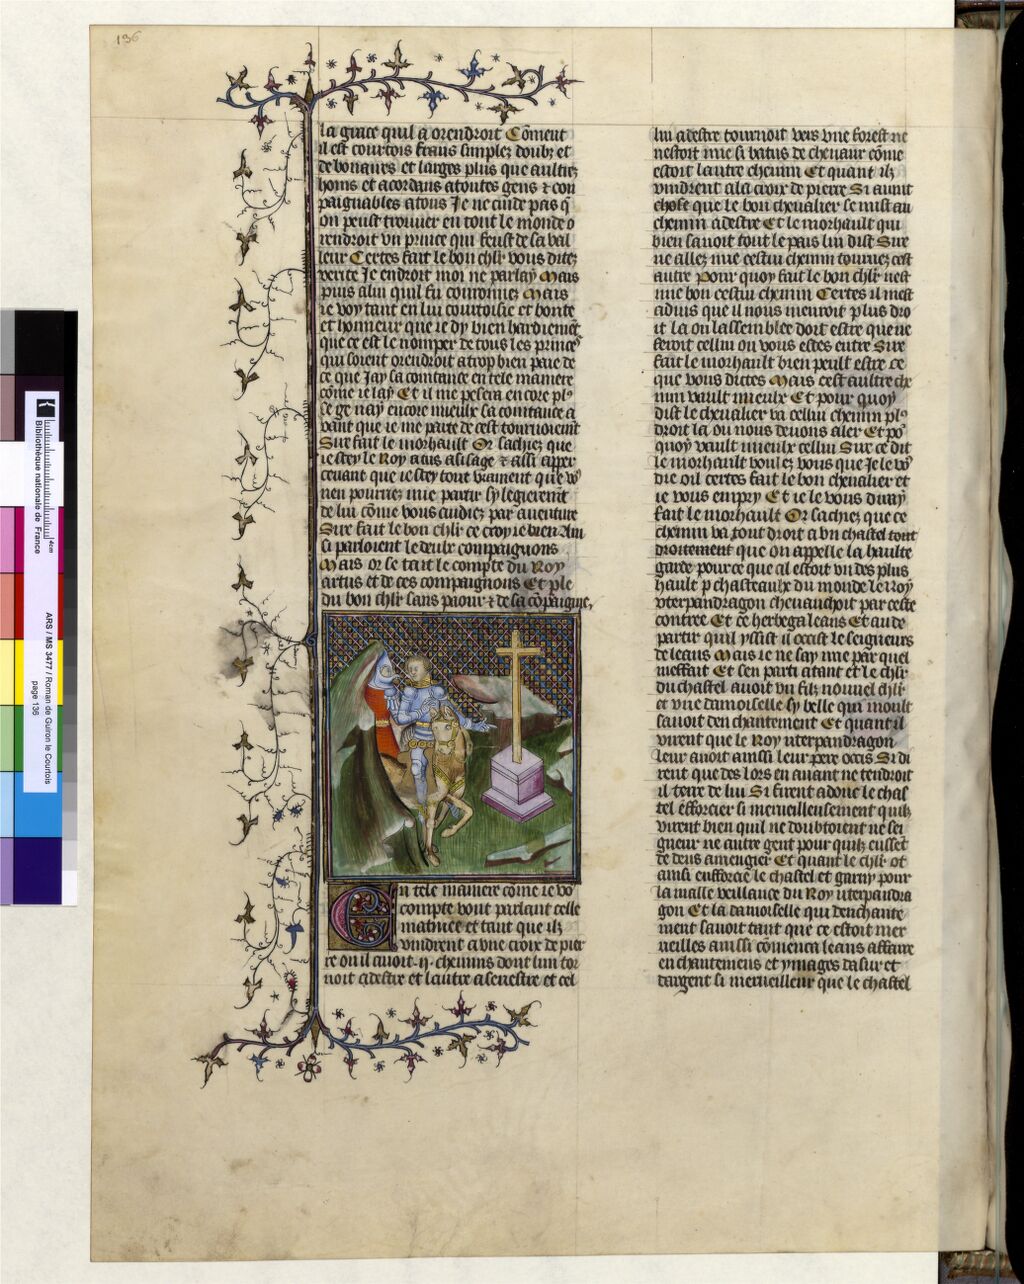 136
la grace quil a orendroit Cōment
il est courtois frans simplez doubz et
debonaires et larges plus que aultrez
homs et acordans atoutes gens & con
paignables a tous Je ne cuide pas q̄
on peust trouver en tout le monde o
rendroit vn prince qui feust de sa val
leur Certes fait le bon chlr vous ditez
verite Je endroit moi ne parlay Mais
puis alui quil fu couronnez Mais
ie voy tant en lui courtoisie et bonte
et honneur que ie dy bien hardiemēt
que ce est le nomper de tous les princeˢ
qui soient orendroit a trop bien paie de
ce que Jay sa cointance en tele maniere
cōme ie lay Et il me pesera encore plˢ
se ge nay encore mieulx sa cointance a
vant que ie me parte de cest tournoiemēt
Sire fait le morhault Or sachiez que
ie scey le Roy artus a si sage & assi apper
cevant que ie scey tout vraiment que vˢ
nen pourriez mie partir sy legierement
de lui cōme vous cuidiez par aventure
Sire fait le bon chlr ce croy ie bien Ain
si parloient le deulx compaignons
Mais or se tait le compte du Roy
artus et de ces compaignons Et ple
du bon chlr sans paour & de sa cōpaignie,
En tele maniere cōme ie vo
compte vont parlant celle
matinee et tant que ilz
vindrent a vne croix de pier
re ou il avoit .ij. chemins dont lun tor
noit a destre et lautre a senestre et cel
lui a destre tournoit vers vne forest ne
nestoit mie si batus de chevaux cōme
estoit lautre chemin Et quant ilz
vindrent a la croix de pierre Si avint
chose que le bon chevalier se mist au
chemin a destre Et le morhault qui
bien savoit tout le pais lui dist Sire
ne allez mie cestui chemin tournez cest
autre Pour quoy fait le bon chlr nest
mie bon cestui chemin Certes il mest
advis que il nous menroit plus dro
it la ou lassemblee doit estre que ne
feroit cellui ou vous estes entre Sire
fait le morhault bien peult estre ce
que vous dictes Mais cest aultre che
min vault mieulx Et pour quoy
dist le chevalier va cellui chemin plˢ
droit la ou nous devons aler Et po᷑
quoy vault mieulx cellui Sire ce dit
le morhault voulez vous que Je le vˢ
die oil certes fait le bon chevalier et
ie vous empry Et ie le vous diray
fait le morhault Or sachiez que ce
chemin va tout droit a vn chastel tout
droitement que on appelle la haulte
garde pource que al estoit vn des plus
hault p chasteaulx du monde le Roy
vterpandragon chevauchoit par ceste
contree Et ce herbega leans Et au de
partir quil yssist il occist le seigneurs
de leans Mais ie ne say mie par quel
meffait Et sen parti atant et le chlr
du chastel avoit vn filz nouvel chlr
et vne damoiselle sy belle qui moult
savoit den chantement Et quant il
virent que le Roy vterpandragon
leur avoit ainssi leur pere occis Si di
rent que des lors en avant ne tendroit
il terre de lui Si firent adonc le chas
tel efforcier si merveilleusement quilz
virent bien quil ne doubtoient ne sei
gneur ne autre gent pour quilz eussēt
de dens a mengier Et quant le chlr ot
ainsi enfforcie le chastel et garny pour
la malle veillance du Roy vterpandra
gon Et la damoiselle qui denchante
ment savoit tant que ce estoit mer
veilles ainssi cōmenca leans affaire
en chantemens et ymages dasur et
dargent si merveilleux que le chastel
Bibliothèque nationale de France
ARS / MS 3477 / Roman de Guiron le Courtois
page 136